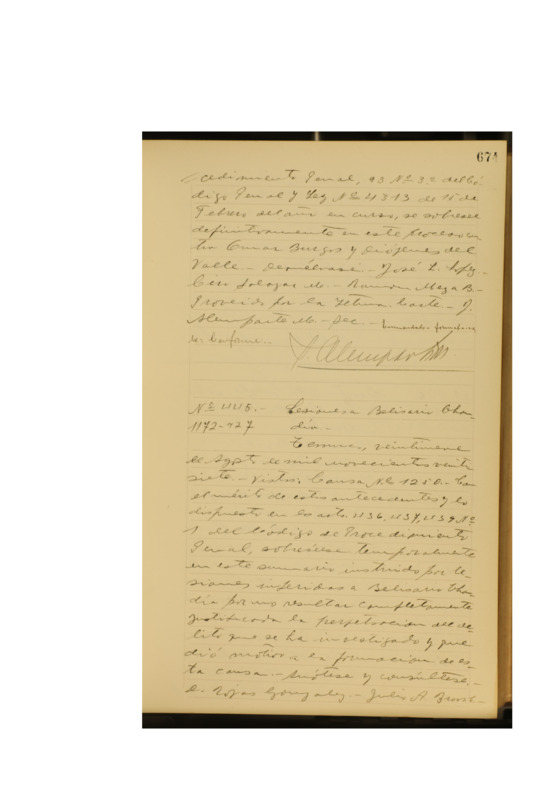 674
cedimiento Penal, 93 Nº 3º del Có-
digo Penal y Ley Nº 4313 de 15 de
Febrero del año en curso, se sobresee
definitivamente en este proceso con-
tra Omar Burgos y Diójenes del
Valle.- Devuélvase.- José L.
Salazar M.- Ramón Meza B-
Proveído por la Iltma. Corte.- J.
Alemparte M.- Sec.-
Conforme.-
J. Alemparte M
Nº 1115.- Lesiones a Belisario Chan-
1172-927 día.-
Temuco, veintinueve
de Agosto de mil novecientos veinti
siete.- Vistos: Causa Nº 1250.- Con
el mérito de estos antecedentes y lo
dispuesto en los arts. 436, 437, 439 Nº
1 del Código de Procedimiento
Penal, sobreséese temporalmente
en este sumario instruido por le-
siones inferidas a Belisario Chan
día por no resultar completamente
justificada la perpetración del de-
lito que se ha investigado y que
dió motivo a la formación de es-
ta causa.- Anótese y consúltese.-
Rojas González.- Julio A.